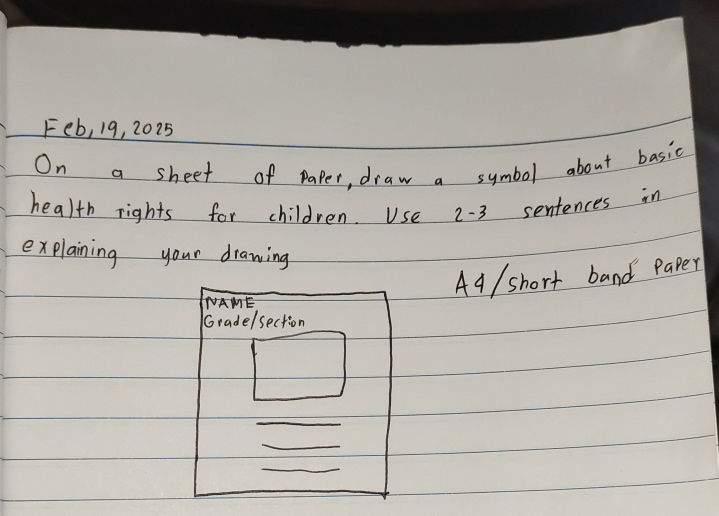 Feb, 19, 2025
On a sheet of paper, draw a symbol about basic
health rights for children. Use 2-3 sentences in
explaining your drawing
A4/short band paper
NAME
Grade/section